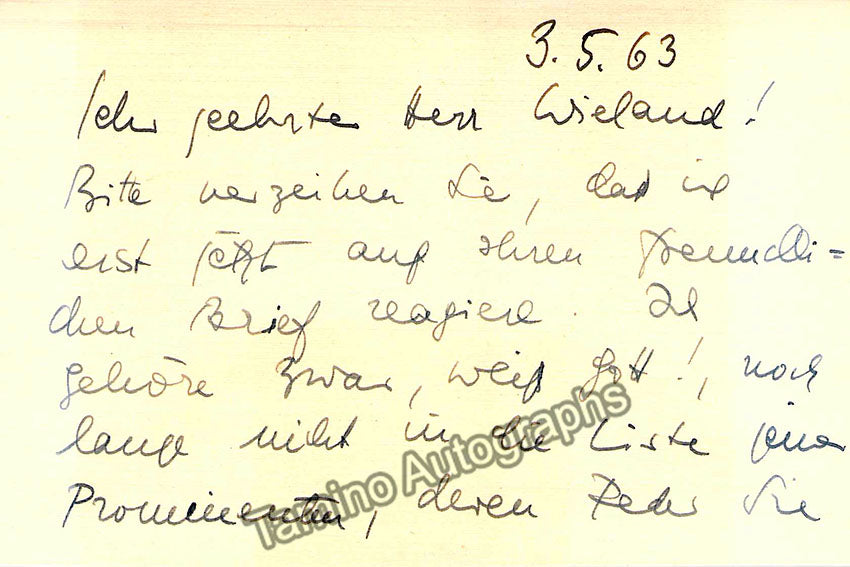 3.5.63
Sehr geehrter Herr Wieland!
Bitte verzeihen Sie, daß ich
erst jetzt auf Ihren freundli=
chen Brief reagiere. Ich
gehöre zwar, weiß Gott!, noch
lange nicht in die Liste jener
Prominenten, deren Feder Sie
Tamino Autographs